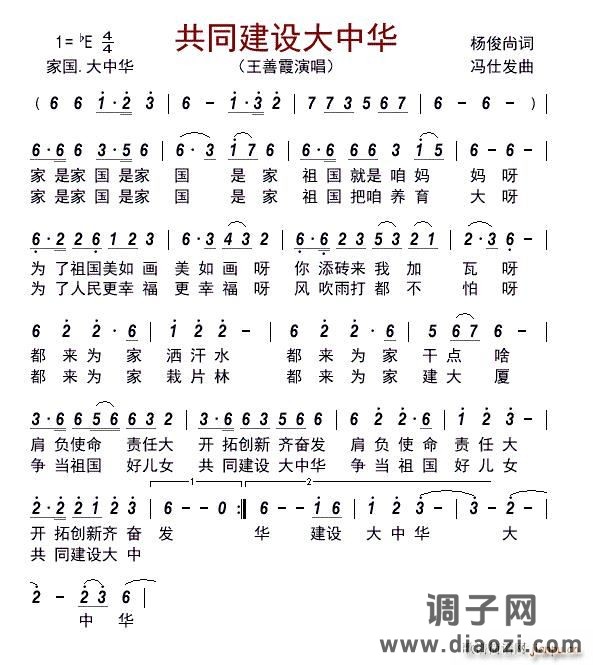 共同建设大中华
1=♭E 4/4
杨俊尚词
家国.大中华
（王善霞演唱）
冯仕发曲
( 6 6 1·2 3 | 6 - 1·3 2 | 7 7 7 3 5 6 7 | 6 - - ) |
6·6 6 3·5 6 | 6·3 1 7 6 | 6·6 6 6 3 1 5 | 6 - - 6 |
家 是家 国 是家 国 是 家 祖 国 就是 咱 妈 妈 呀
家 是家 国 是家 国 是 家 祖 国 把咱 养 育 大 呀
6·2 2 6 1 2 3 | 6·6 4 3 2 | 1·6 6 2 5 3 2 1 | 2·3 6 |
为 了祖国美如 画 美 如 画 呀 你 添砖来 我 加 瓦 呀
为 了人民更幸 福 更 幸 福 呀 风 吹雨打 都 不 怕 呀
6 2 2·6 | 1 2 2 - | 6 2 2·6 | 5 6 7 6 |
都 来 为 家 洒 汗 水 都 来 为 家 干 点 啥
都 来 为 家 栽 片 林 都 来 为 家 建 大 厦
3·6 6 5 6 6 3 2 | 1·6 6 6 3·3 2 | 3·6 6 1 | 1 2 3 - |
肩 负使命 责任大 开 拓创新 齐奋发 肩 负 使 命 责 任 大
争 当祖国 好儿女 共 同建设 大中华 争 当 祖 国 好 儿 女
2·2 2 2 3 3 | 6 - - 0 :‖ 6 - - 1 6 | 3·6 1 2 | 3 - - 2 |
1
2
开 拓创新齐 奋 发 华 建设 大 中 华 大
共 同建设大 中
2 - 2 3 | 6 - - |
中 华
调子网
www.diaozi.com